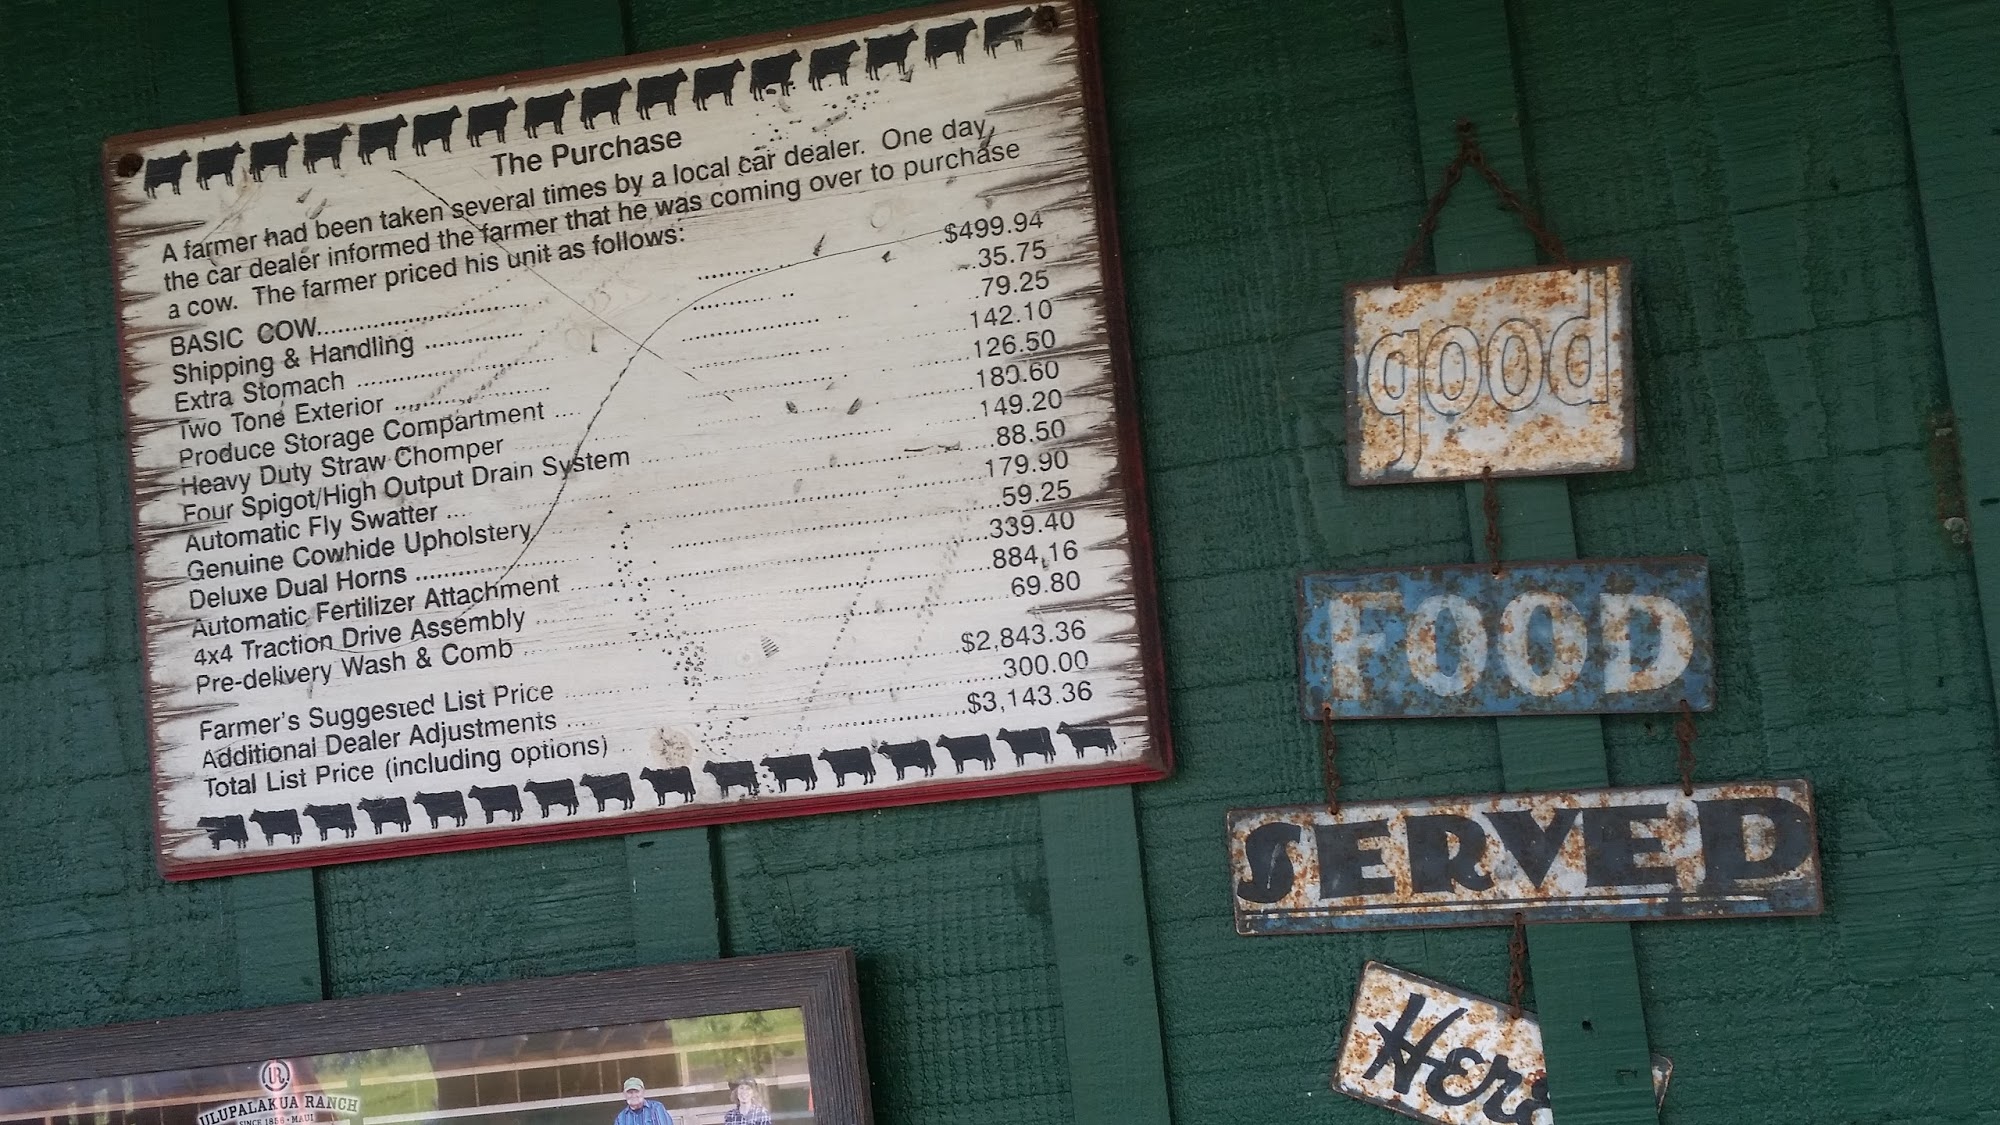 The Purchase
A farmer had been taken several times by a local car dealer. One day,
the car dealer informed the farmer that he was coming over to purchase
a cow. The farmer priced his unit as follows:
BASIC COW $499.94
Shipping & Handling 35.75
Extra Stomach 79.25
Two Tone Exterior 142.10
Produce Storage Compartment 126.50
Heavy Duty Straw Chomper 180.60
Four Spigot/High Output Drain System 149.20
Automatic Fly Swatter 88.50
Genuine Cowhide Upholstery 179.90
Deluxe Dual Horns 59.25
Automatic Fertilizer Attachment 339.40
4x4 Traction Drive Assembly 884.16
Pre-delivery Wash & Comb 69.80
Farmer's Suggested List Price $2,843.36
Additional Dealer Adjustments 300.00
Total List Price (including options) $3,143.36
good
FOOD
SERVED
Here
UR
ULUPALAKUA RANCH
SINCE 1856 • MAUI